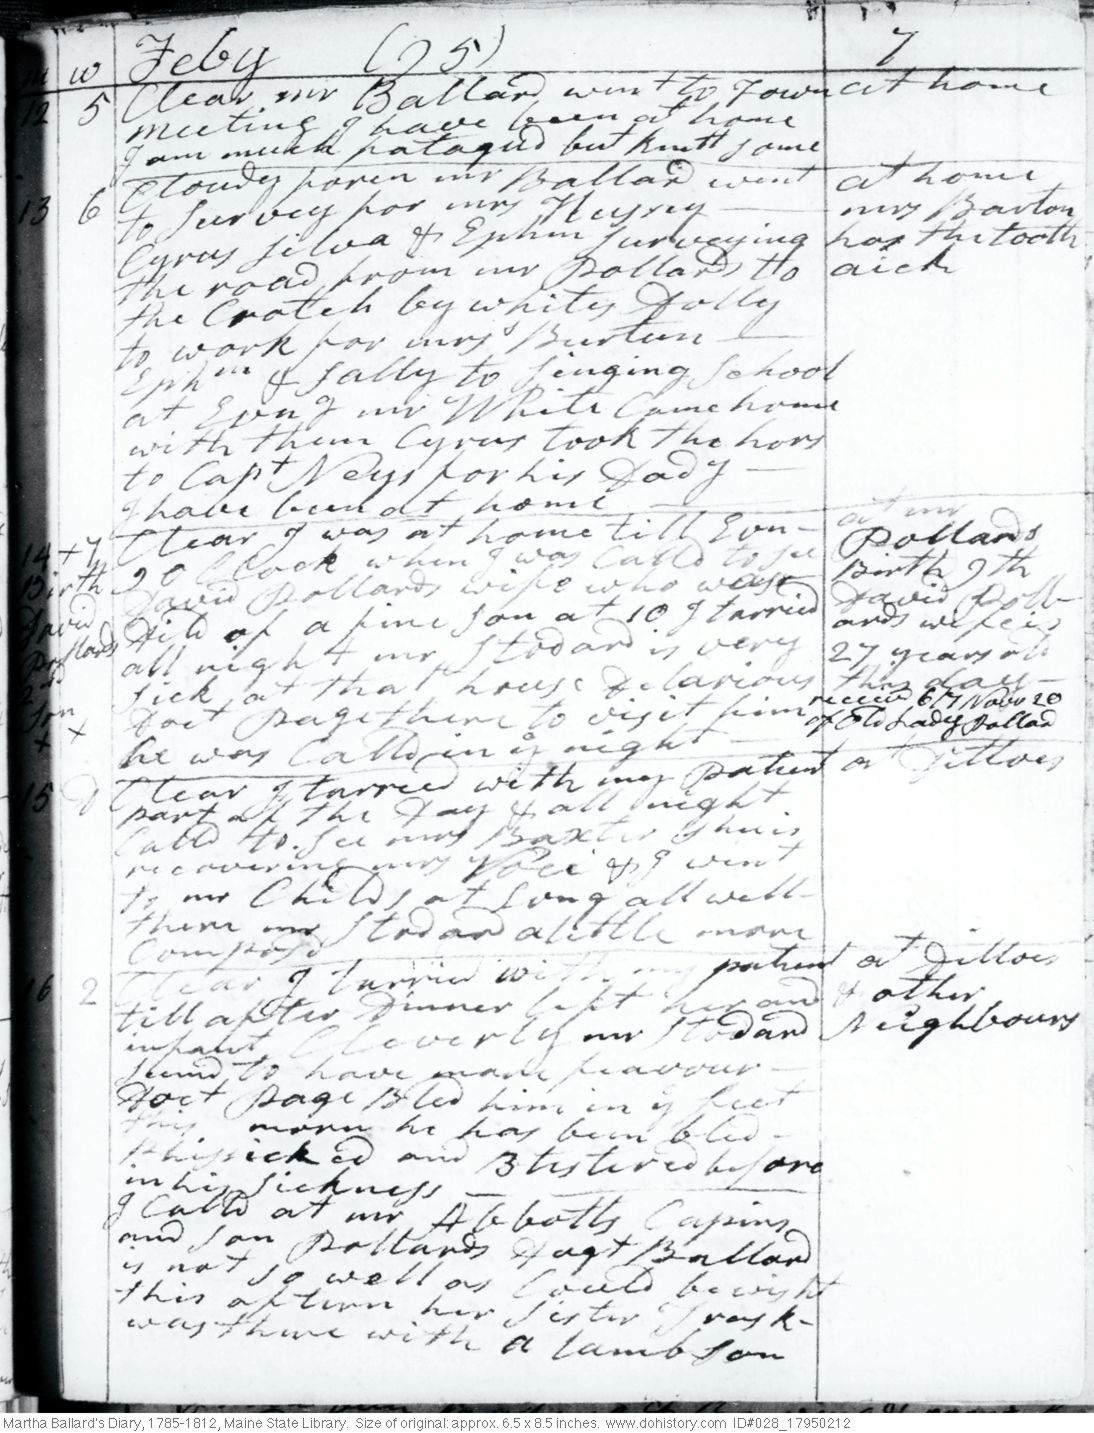 m w Feby (95) 7
12 5 Clear mr Ballard went to Town at home
meeting I have been at home
I am much fatagud but knitt some
13 6 Cloudy foren mr Ballard went at home
to Survey for mrs Hussey — mrs Barton
Cyrus Silva & Ephm Surveying has the tooth
the road from mr Pollards to aick
the Crotch by whites Dolly
to work for mrs Burtun —
Ephm & Sally to Singing School
at Evng mr White Came home
with them Cyrus took the hors
to Capt Neys for his Dady —
I have been at home —
14 + 7 Clear I was at home till Evn- at mr Pollards
Birth 9 O Clock when I was Calld to see Birth 9th
David David Pollards wife who was David Poll-
Pollards Dild of a fine son at 10 I tarried ards wife is
2nd all night mr Stodard is very 27 years old
son sick at that house Delarious this day-
x x Doct Page there to visit him receivd 6/7 Novr 20
he was Calld in ye night — of Old Lady Pollard
15 D Clear I tarried with my patient at Dittoes
part of the Day & all night
Calld to see mrs Baxter shee is
recovering mrs & I went
to mr Childs at Evng all well-
there mr Stodard a little more
Composd
16 2 Clear I tarried with my patient at Dittoes
till after Dinner left her and & other
infant Cleverly mr Stodard Neighbours
seemd to have more feavour —
Doct Page Bled him in ye feet
this morn he has been bled-
Phisicked and Blistered before
in his sickness —
I Calld at mr Abbotts Capins
and son Pollards Dagt Ballard
is not so well as Could be wisht
this aftern her sister Trask-
was there with a lamb son
Martha Ballard's Diary, 1785-1812, Maine State Library. Size of original: approx. 6.5 x 8.5 inches. www.dohistory.com ID#028_17950212